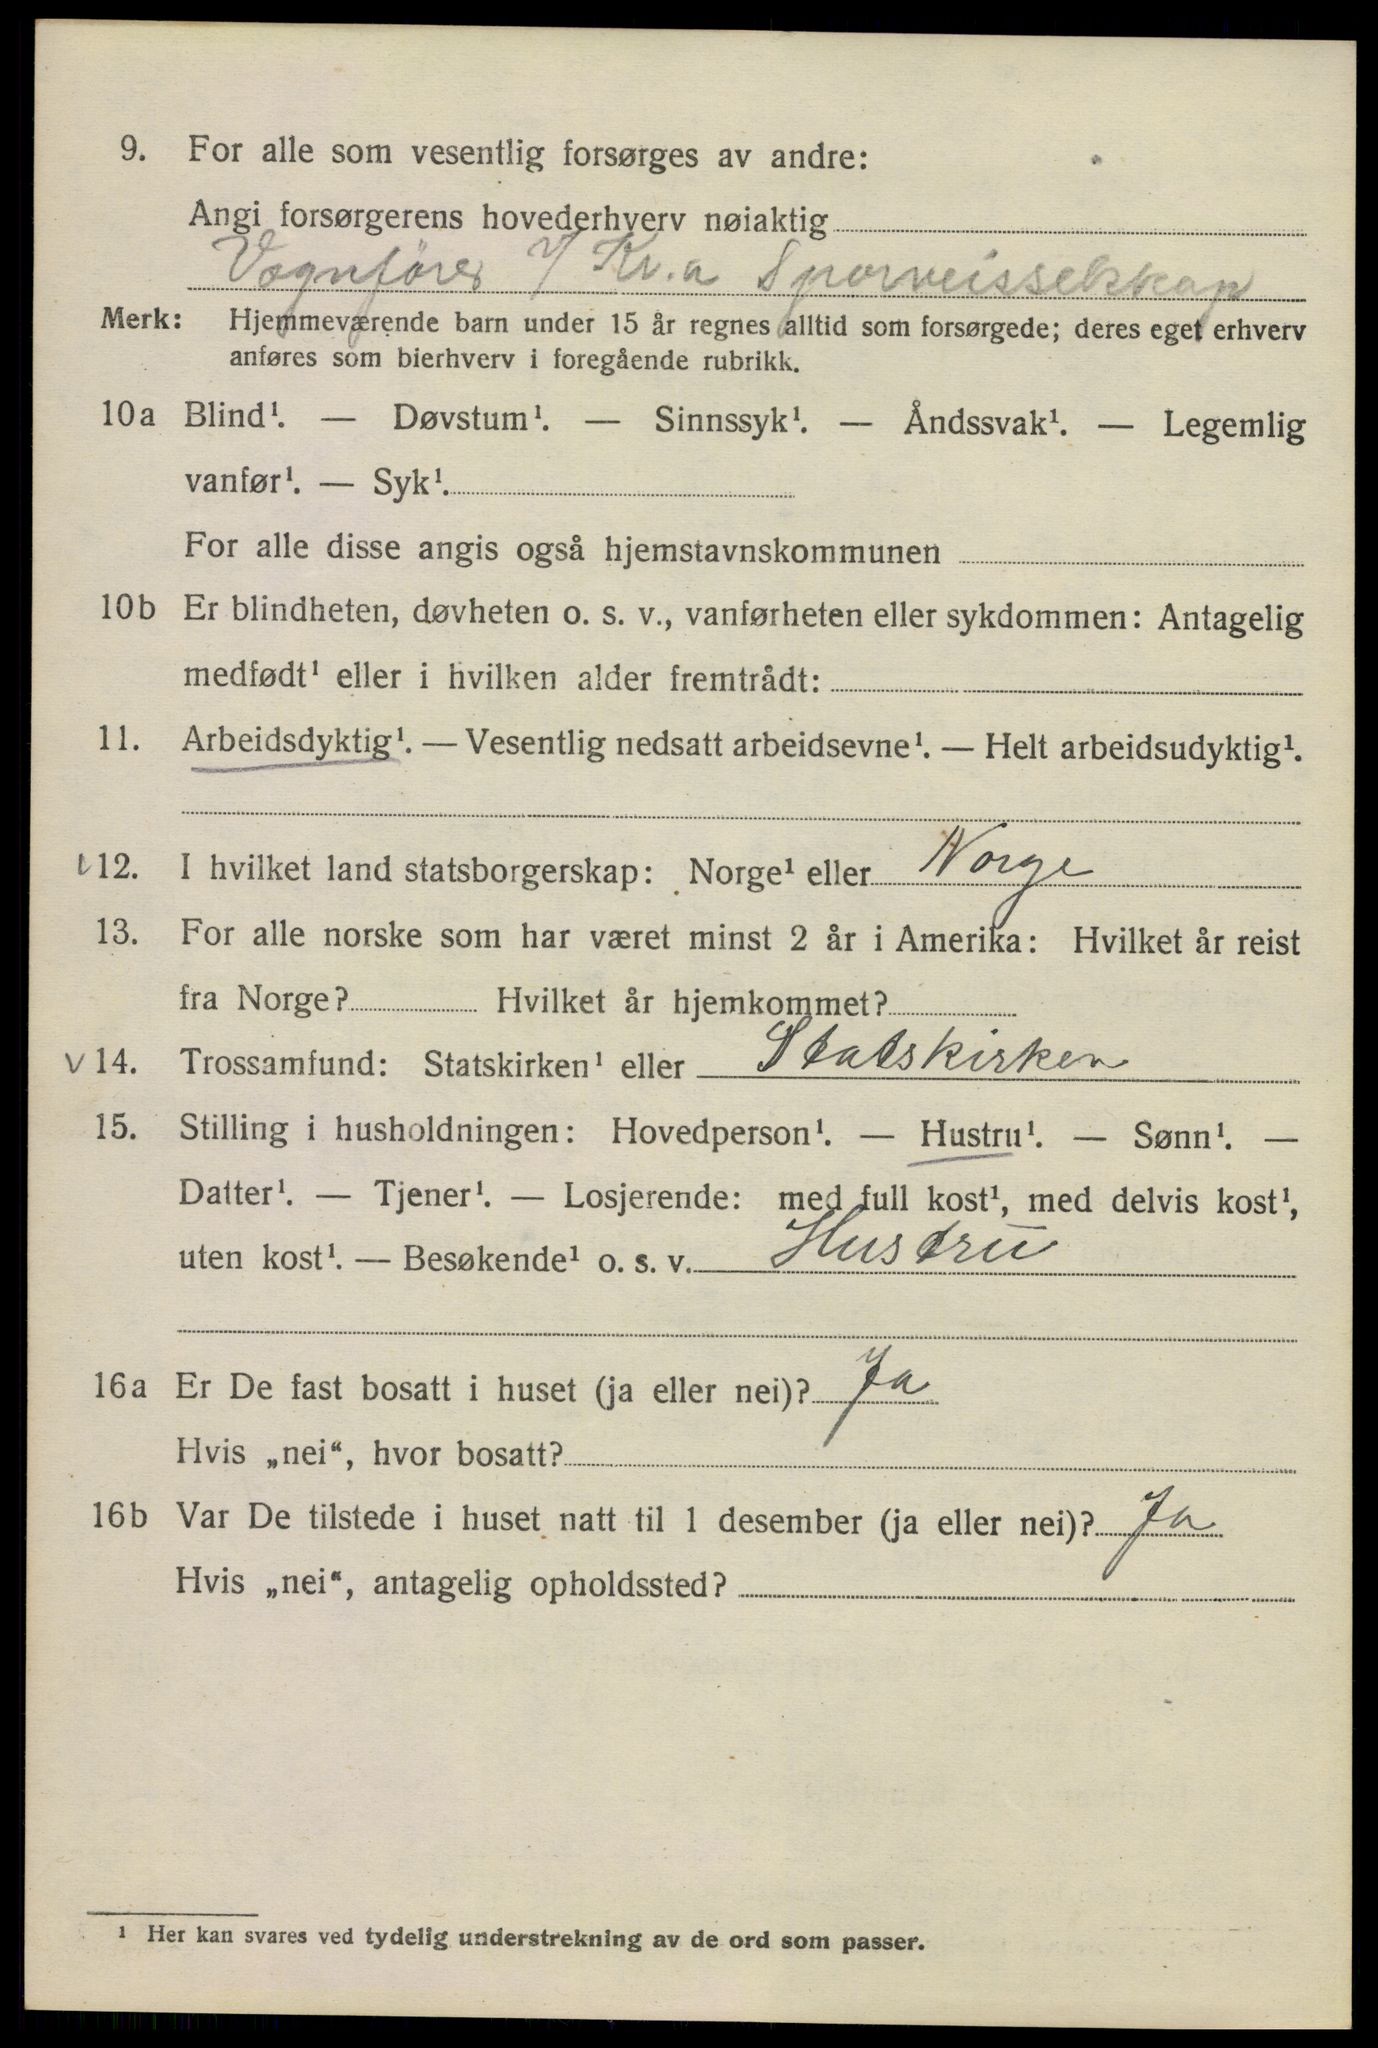 9. For alle som vesentlig forsørges av andre:
Angi forsørgerens hovederhverv nøiaktig
Vognförer v/ Kr.a Sporveisselskap
Merk: Hjemmeværende barn under 15 år regnes alltid som forsørgede; deres eget erhverv
anføres som bierhverv i foregående rubrikk.
10a Blind¹. — Døvstum¹. — Sinnssyk¹. — Åndssvak¹. — Legemlig
vanfør¹. — Syk¹.
For alle disse angis også hjemstavnskommunen
10b Er blindheten, døvheten o. s. v., vanførheten eller sykdommen: Antagelig
medfødt¹ eller i hvilken alder fremtrådt:
11. Arbeidsdyktig¹. — Vesentlig nedsatt arbeidsevne¹. — Helt arbeidsudyktig¹.
12. I hvilket land statsborgerskap: Norge¹ eller Norge
13. For alle norske som har været minst 2 år i Amerika: Hvilket år reist
fra Norge? Hvilket år hjemkommet?
v 14. Trossamfund: Statskirken¹ eller Statskirken
15. Stilling i husholdningen: Hovedperson¹. — Hustru¹. — Sønn¹. —
Datter¹. — Tjener¹. — Losjerende: med full kost¹, med delvis kost¹,
uten kost¹. — Besøkende¹ o. s. v. Hustru
16a Er De fast bosatt i huset (ja eller nei)? Ja
Hvis „nei“, hvor bosatt?
16b Var De tilstede i huset natt til 1 desember (ja eller nei)? Ja
Hvis „nei“, antagelig opholdssted?
¹ Her kan svares ved tydelig understrekning av de ord som passer.